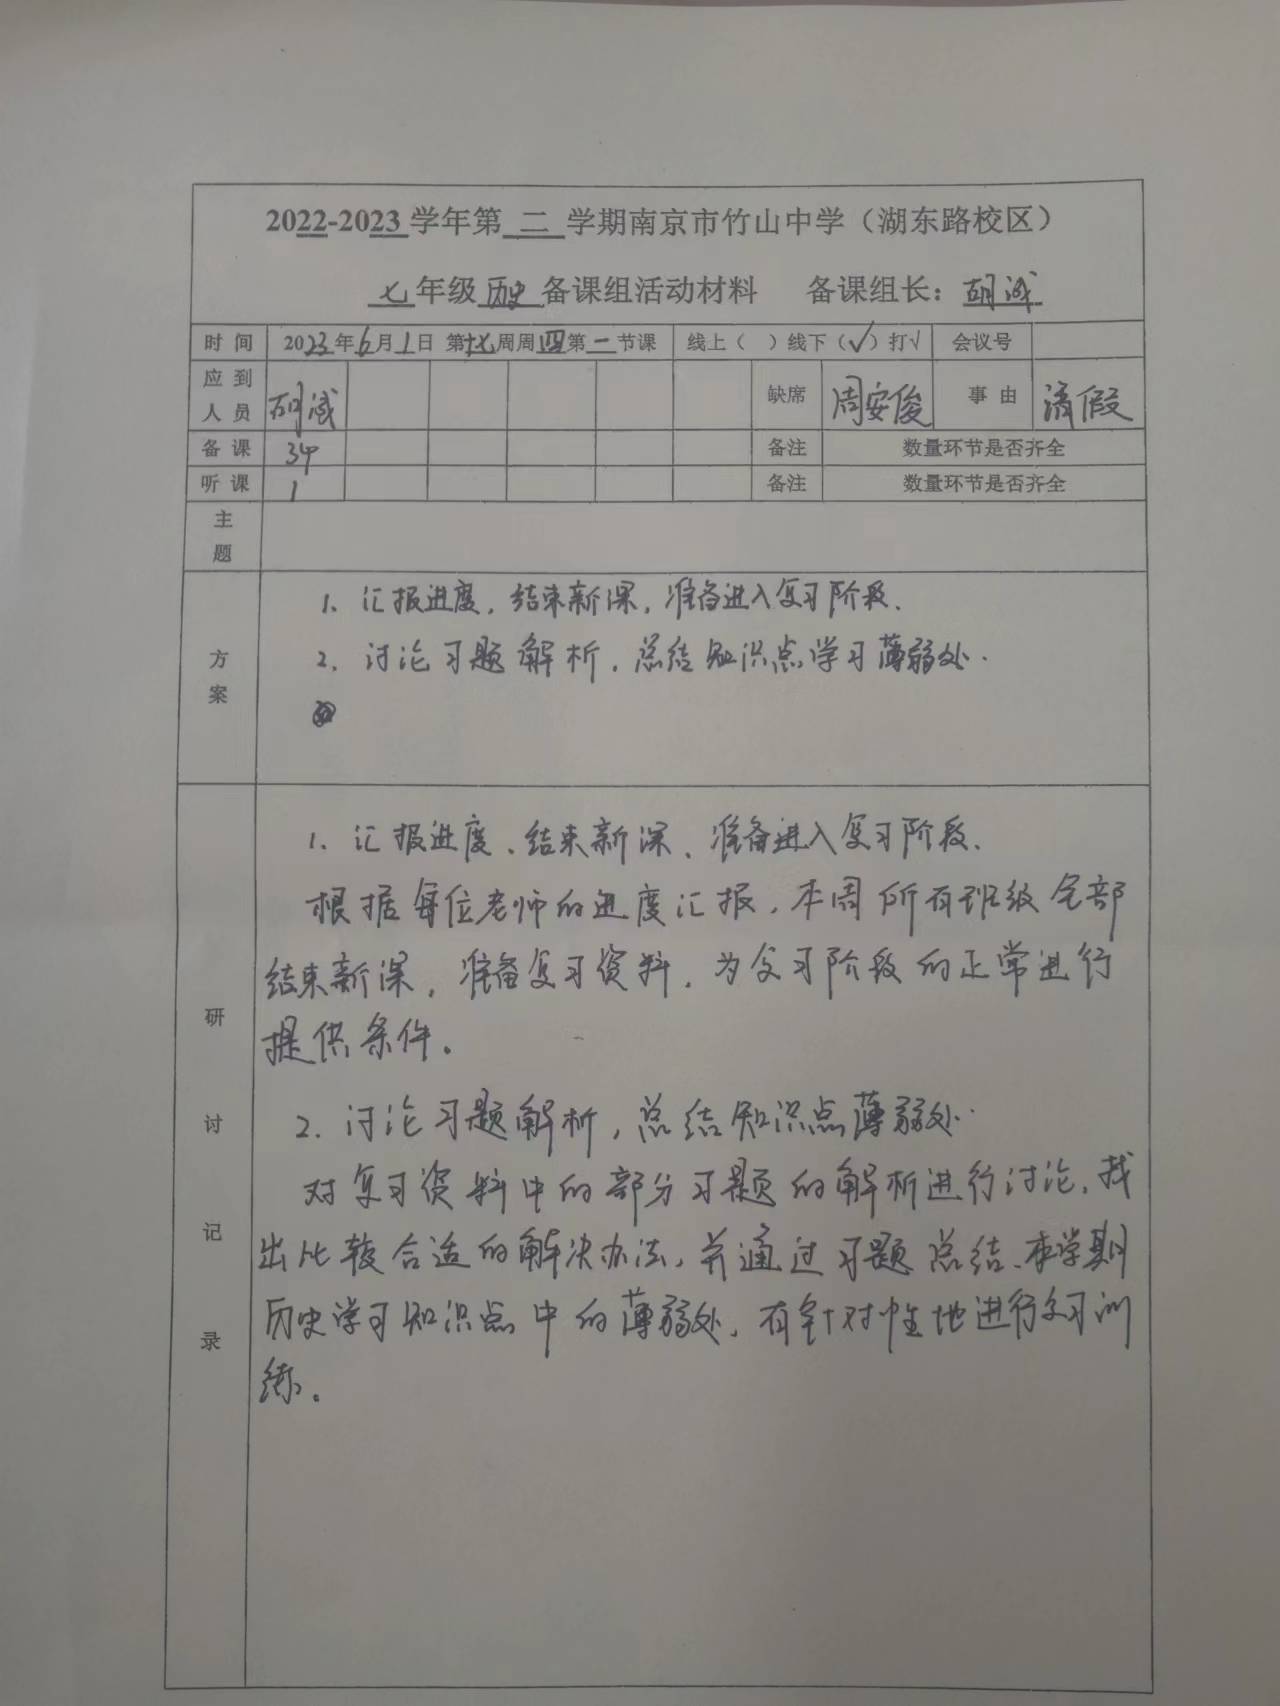 2022-2023 学年第 二 学期南京市竹山中学（湖东路校区）
七 年级 历史 备课组活动材料 备课组长：胡诚
时 间 2023年6月1日 第十七周周四第一节课 线上（ ）线下（√）打√ 会议号
应 到 人 员 胡诚 缺席 周安俊 事 由 请假
备 课 34 备注 数量环节是否齐全
听 课 1 备注 数量环节是否齐全
主 题
方 案
1. 汇报进度，结束新课，准备进入复习阶段.
2. 讨论习题解析，总结知识点学习薄弱处.
研 讨 记 录
1. 汇报进度、结束新课、准备进入复习阶段.
根据每位老师的进度汇报，本周所有班级全部
结束新课，准备复习资料，为复习阶段的正常进行
提供条件。
2. 讨论习题解析，总结知识点薄弱处.
对复习资料中的部分习题的解析进行讨论，找
出比较合适的解决办法，并通过习题总结本学期
历史学习知识点中的薄弱处，有针对性地进行复习训
练。